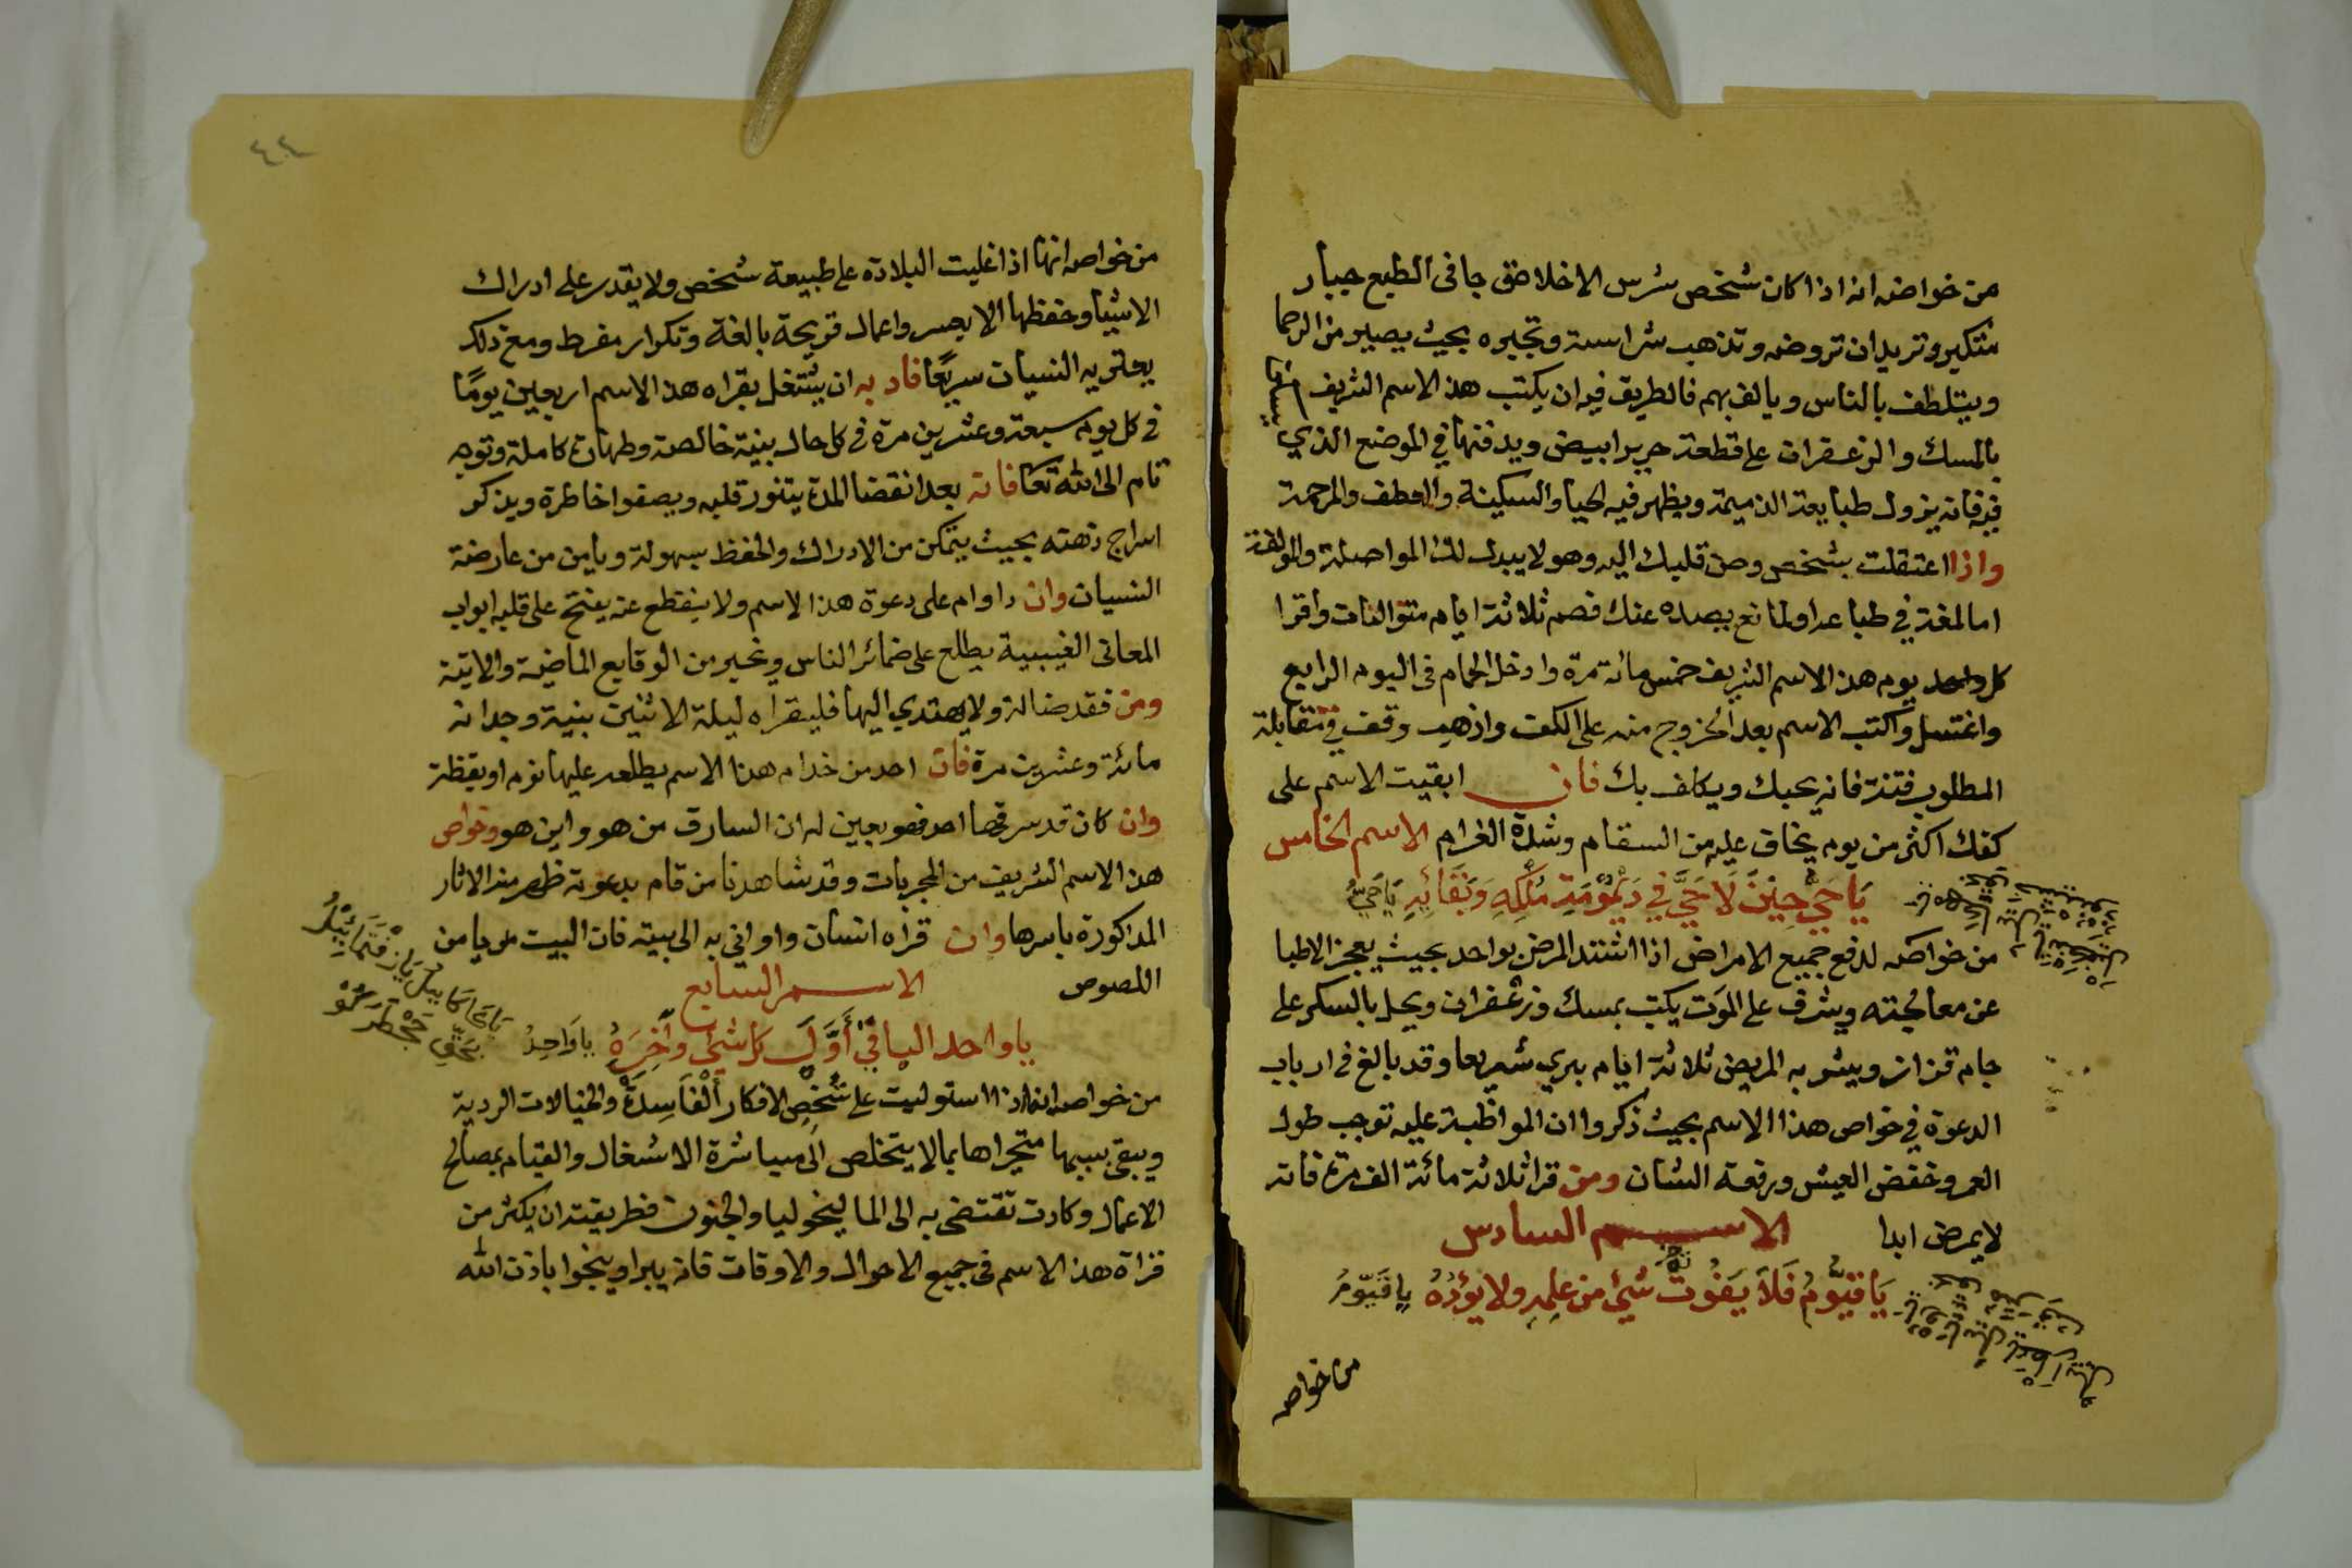 من خواصه انه اذا كان شخص شرس الاخلاق جافى الطبع جبار
متكبر وتريد ان تروضه وتذهب شراسته وتجبره بحيث يصير من الرحما
ويتلطف بالناس ويالف بهم فالطريق فيه ان يكتب هذ الاسم الشريف
بالمسك والزعفران على قطعة حرير ابيض ويدفنها في الموضع الذي
فيه فانه يزول طبايعه الذميمة ويظهر فيه الحيا والسكينة والعطف والمرحمة
واذا اعتقلت بشخص وحن قلبك اليه وهو لا يبدل لك المواصلة والمولفة
اما لمغة في طباعه او لمانع يصده عنك فصم ثلاثة ايام متوالفات واقرا
كل واحد يوم هذ الاسم الشريف خمس مائة مرة وادخل الحمام فى اليوم الرابع
واغتسل واكتب الاسم بعد الخروج منه على الكف واذهب وقف في مقابلة
المطلوب فتنة فانه يحبك ويكلف بك فان ابقيت الاسم على
كفك اكثر من يوم يخاف عليه من السقام وشدة الغرام الاسم الخامس
يَا حَيُّ حِيْنَ لَا حَيَّ فِي دَيْمُوْمَةِ مُلْكِهِ وَبَقَائِهِ يَا حَيُّ
من خواصه لدفع جميع الامراض اذا اشتد المرض بواحد بحيث يعجز الاطبا
عن معالجته ويشرف على الموت يكتب بمسك وزعفران ويحل بالسكر على
جام قزاز ويشربه المريض ثلاثة ايام يبري سريعا وقد بالغ فى ارباب
الدعوة في خواص هذا الاسم بحيث ذكروا ان المواظبة عليه توجب طول
العمر وخفض العيش ورفعة الشان ومن قرا ثلاثة مائة الف مرة فانه
لا يمرض ابدا الاسم السادس
يَا قَيُّوْمُ فَلَا يَفُوْتُ شَيْئ من عِلمِهِ ولا يؤدُهُ يا قَيّوْمُ
من خواصه
٤٤
من خواصه انها اذا غليت البلادة على طبيعة شخص ولا يقدر على ادراك
الاشيا وحفظها الا بعسر واعمال قريحة بالغة وتكرار مفرط ومع ذلك
يعتريه النسيان سريعًا فادبه ان يشتغل بقراه هذ الاسم اربعين يومًا
في كل يوم سبعة وعشرين مرة في كل حال بنية خالصة وطهارة كاملة وتوجه
تام الى الله تعا فانه بعد انقضا المدة يتنور قلبه ويصفوا خاطرة ويذكر
اسراج ذهنه بحيث يتمكن من الادراك والحفظ بسهولة ويامن من عارضة
النسيان وان داوام على دعوة هذا الاسم ولا ينقطع عنه يفتح على قلبه ابواب
المعانى الغيبية يطلع على ضمائر الناس ويخبر من الوقايع الماضية والايتة
ومن فقد ضالة ولا يهتدي اليها فليقراه ليلة الاثنين بنية وجدانه
مائة وعشرين مرة فان احد من خدام هذا الاسم يطلعه عليها نوم او يقظة
وان كان قد سرقها احد فهو يعين له ان السارق من هو واين هو وخواص
هذ الاسم الشريف من المجربات وقد شاهدنا من قام بدعوته ظهر منه الاثار
المذكورة باسرها وان قراه انسان واواني به الى بيته فان البيت من يامن من
اللصوص الاسم السابع
يا واحد الباقي أَوَّلَ كل شيْ وآخِرَهُ يا وَاحِدُ
من خواصه انه اذا استوليت على شخصِ الافكار اَلْفَاسِدَةُ والخيالات الردية
ويبقى بسببها متحيرا هايما لا يتخلص الى مباشرة الاشغال والقيام بمصالح
الاعمال وكادت تقتضى به الى الماليخوليا والجنون فطريقته ان يكثر من
قراة هذ الاسم في جميع الاحوال والاوقات فانه يبرا وينجوا باذن الله